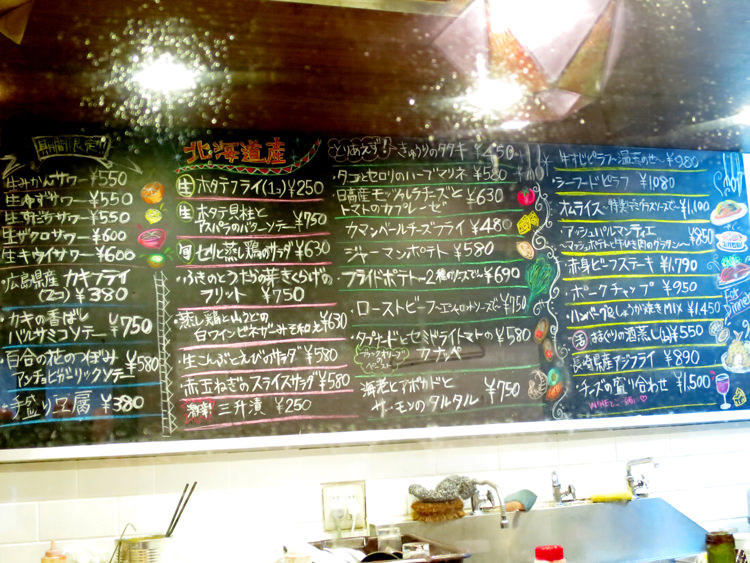 期間限定!!
生みかんサワー ¥550
生ゆずサワー ¥550
生すだちサワー ¥550
生ザクロサワー ¥600
生キウイサワー ¥600
・広島県産 カキフライ
(2コ) ¥380
カキの香ばし
バルサミコソテー ¥750
百合の花のつぼみ
アンチョビガーリックソテー ¥580
・手盛り豆腐 ¥380
北海道産
生 ホタテフライ(1コ) ¥250
生 ホタテ貝柱と
アスパラのバターソテー ¥750
旬 セリと蒸し鶏のサラダ ¥630
・ふきのとうたらの芽きくらげの
フリット ¥750
蒸し鶏と山うどの
白ワインビネガーみそ和え ¥630
・生こんぶとえびのサラダ ¥580
・赤玉ねぎのスライスサラダ ¥580
激辛! 三升漬 ¥250
とりあえず! きゅうりのタタキ ¥450
・タコとセロリのハーブマリネ ¥580
日高産モッツァレラチーズと
トマトのカプレーゼ ¥630
カマンベールチーズフライ ¥480
・ジャーマンポテト ¥580
フライドポテト〜2種のソースで〜 ¥690
・ローストビーフ ¥750
・タプナードとセミドライトマトの
カナッペ ¥580
海老とアボカドと
サーモンのタルタル ¥750
牛すじピラフ〜温玉のせ〜 ¥980
・シーフードピラフ ¥1080
オムライス〜特製デミグラスソース〜 ¥1,100
・アッシェパルマンティエ
〜マッシュポテトとひき肉のグラタン〜 ¥850
・赤身ビーフステーキ ¥1,790
・ポークチャップ ¥950
・ハンバーグ&しょうが焼きMIX ¥1,450
活 はまぐりの酒蒸し(1コ) ¥550
長崎県産アジフライ ¥890
・チーズの盛り合わせ ¥1,500
WINEと一緒に
For Dinner!